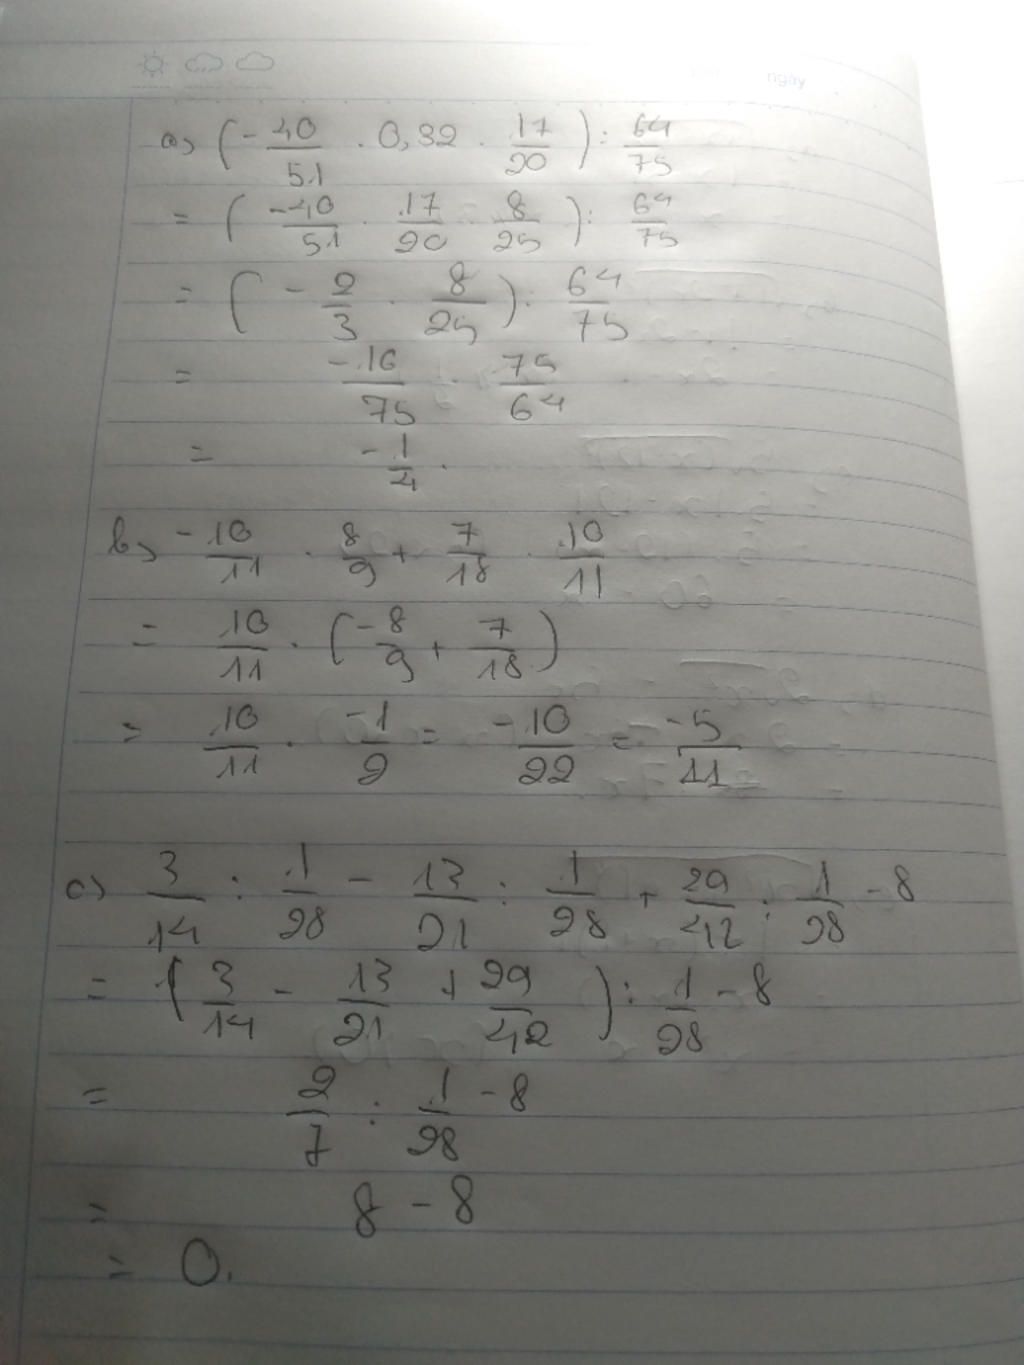 ngày
a, (-40/51 . 0,32 . 17/20) : 64/75
= (-40/51 . 17/20 . 8/25) : 64/75
= (-2/3 . 8/25) : 64/75
= -16/75 . 75/64
= -1/4.
b, -10/11 . 8/9 + 7/18 . 10/11
= 10/11 . (-8/9 + 7/18)
= 10/11 . -1/2 = -10/22 = -5/11
c) 3/14 : 1/28 - 13/21 : 1/28 + 29/42 : 1/28 - 8
= (3/14 - 13/21 + 29/42) : 1/28 - 8
= 2/7 : 1/28 - 8
= 8 - 8
= 0.